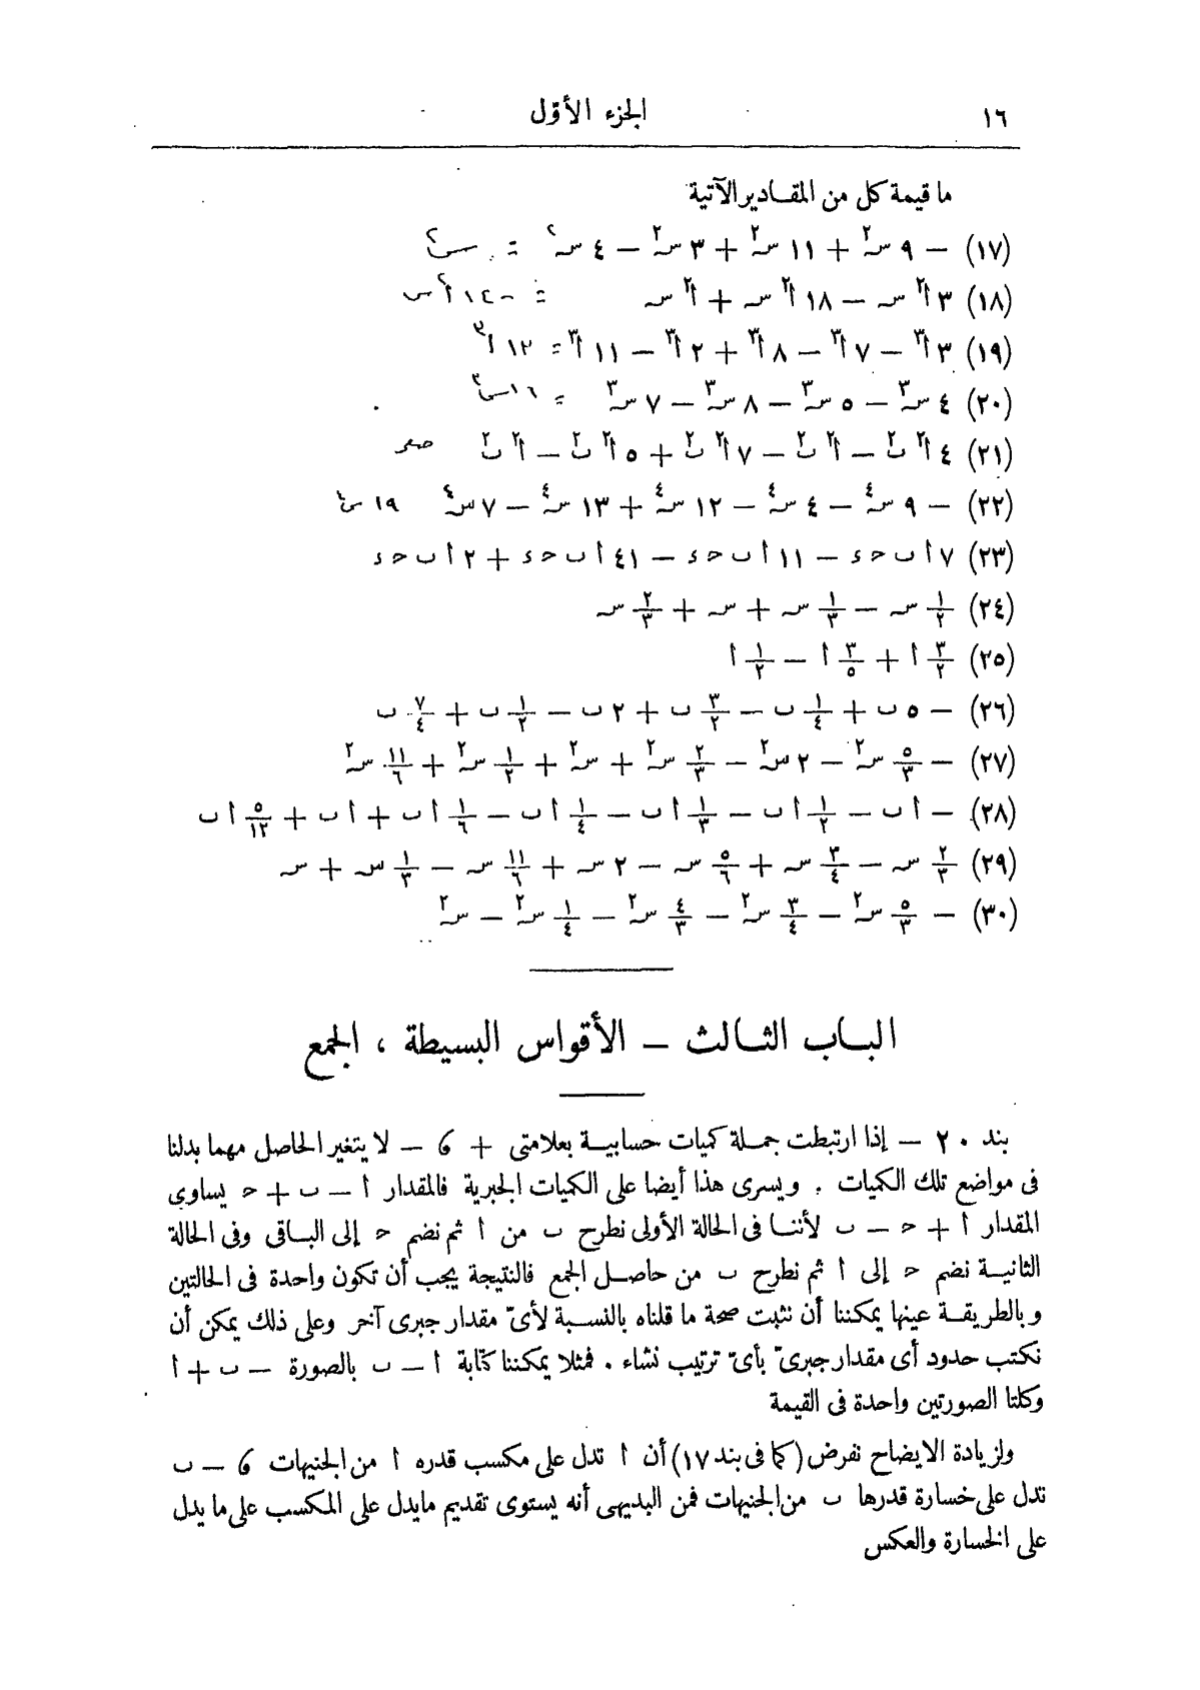 ١٦ الجزء الأوّل
ما قيمة كل من المقادير الآتية
(١٧) − ٩ س٢ + ١١ س٢ + ٣ س٢ − ٤ س٢ = س٢
(١٨) ٣ أ٢ س − ١٨ أ٢ س + أ٢ س = −١٤ أ٢ س
(١٩) ٣ أ٣ − ٧ أ٣ − ٨ أ٣ + ٢ أ٣ − ١١ أ٣ = ١٢ أ٣
(٢٠) ٤ س٣ − ٥ س٣ − ٨ س٣ − ٧ س٣ = ١٦ س٣
(٢١) ٤ أ٢ ب٢ − أ٢ ب٢ − ٧ أ٢ ب٢ + ٥ أ٢ ب٢ − أ٢ ب٢ صفر
(٢٢) − ٩ س٤ − ٤ س٤ − ١٢ س٤ + ١٣ س٤ − ٧ س٤ ١٩ س٤
(٢٣) ٧ أ ب ح ء − ١١ أ ب ح ء − ٤١ أ ب ح ء + ٢ أ ب ح ء
(٢٤) ١/٢ س − ١/٣ س + س + ٢/٣ س
(٢٥) ٣/٢ أ + ٣/٥ أ − ١/٢ أ
(٢٦) − ٥ ب + ١/٤ ب − ٣/٢ ب + ٢ ب − ١/٢ ب + ٧/٤ ب
(٢٧) − ٥/٣ س٢ − ٢ س٢ − ٢/٣ س٢ + س٢ + ١/٢ س٢ + ١١/٦ س٢
(٢٨) − أ ب − ١/٢ أ ب − ١/٣ أ ب − ١/٤ أ ب − ١/٦ أ ب + أ ب + ٥/١٢ أ ب
(٢٩) ٢/٣ س − ٣/٤ س + ٥/٦ س − ٢ س + ١١/٦ س − ١/٣ س + س
(٣٠) − ٥/٣ س٢ − ٣/٤ س٢ − ٤/٣ س٢ − ١/٤ س٢ − س٢
الباب الثالث − الأقواس البسيطة ، الجمع
بند ٢٠ − إذا ارتبطت جملة كميات حسابية بعلامتى + ، − لا يتغير الحاصل مهما بدلنا
فى مواضع تلك الكميات . ويسرى هذا أيضا على الكميات الجبرية فالمقدار أ − ب + ح يساوى
المقدار أ + ح − ب لأننا فى الحالة الأولى نطرح ب من أ ثم نضم ح إلى الباقى وفى الحالة
الثانية نضم ح إلى أ ثم نطرح ب من حاصل الجمع فالنتيجة يجب أن تكون واحدة فى الحالتين
وبالطريقة عينها يمكننا أن نثبت صحة ما قلناه بالنسبة لأىّ مقدار جبرى آخر وعلى ذلك يمكن أن
نكتب حدود أى مقدار جبرىّ بأىّ ترتيب نشاء . فمثلا يمكننا كتابة أ − ب بالصورة − ب + أ
وكلتا الصورتين واحدة فى القيمة
ولزيادة الايضاح نفرض (كما فى بند ١٧) أن أ تدل على مكسب قدره أ من الجنيهات ، − ب
تدل على خسارة قدرها ب من الجنيهات فمن البديهى أنه يستوى تقديم مايدل على المكسب على ما يدل
على الخسارة والعكس